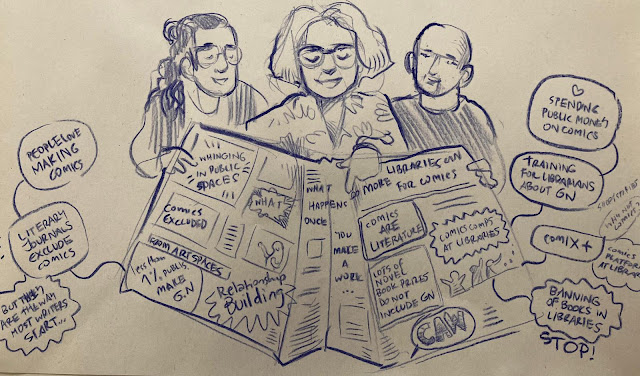 PEOPLE LOVE
MAKING
COMICS
LITERARY
JOURNALS
EXCLUDE
COMICS
BUT THEY
ARE THE WAY
MOST WRITERS
START...
WHINGING
IN PUBLIC
SPACES
WHAT
COMICS
EXCLUDED
FROM ART SPACES
less than
1% PUBLIC.
MAKE
G.N
Relationship
Building
WHAT
HAPPENS
ONCE
YOU
MAKE
A
WORK
...
LIBRARIES CAN
DO MORE FOR COMICS
COMICS
ARE
LITERATURE
COMICS COMPS
AT LIBRARIES
LOTS OF
NOVEL
BOOK PRIZES
DO NOT
INCLUDE GN
CAW
SPENDING
PUBLIC MONEY
ON COMICS
TRAINING
FOR LIBRARIANS
ABOUT GN
COMIX +
COMICS
PLATFORM
AT LIBRARY
BANNING
OF BOOKS IN
LIBRARIES
STOP!